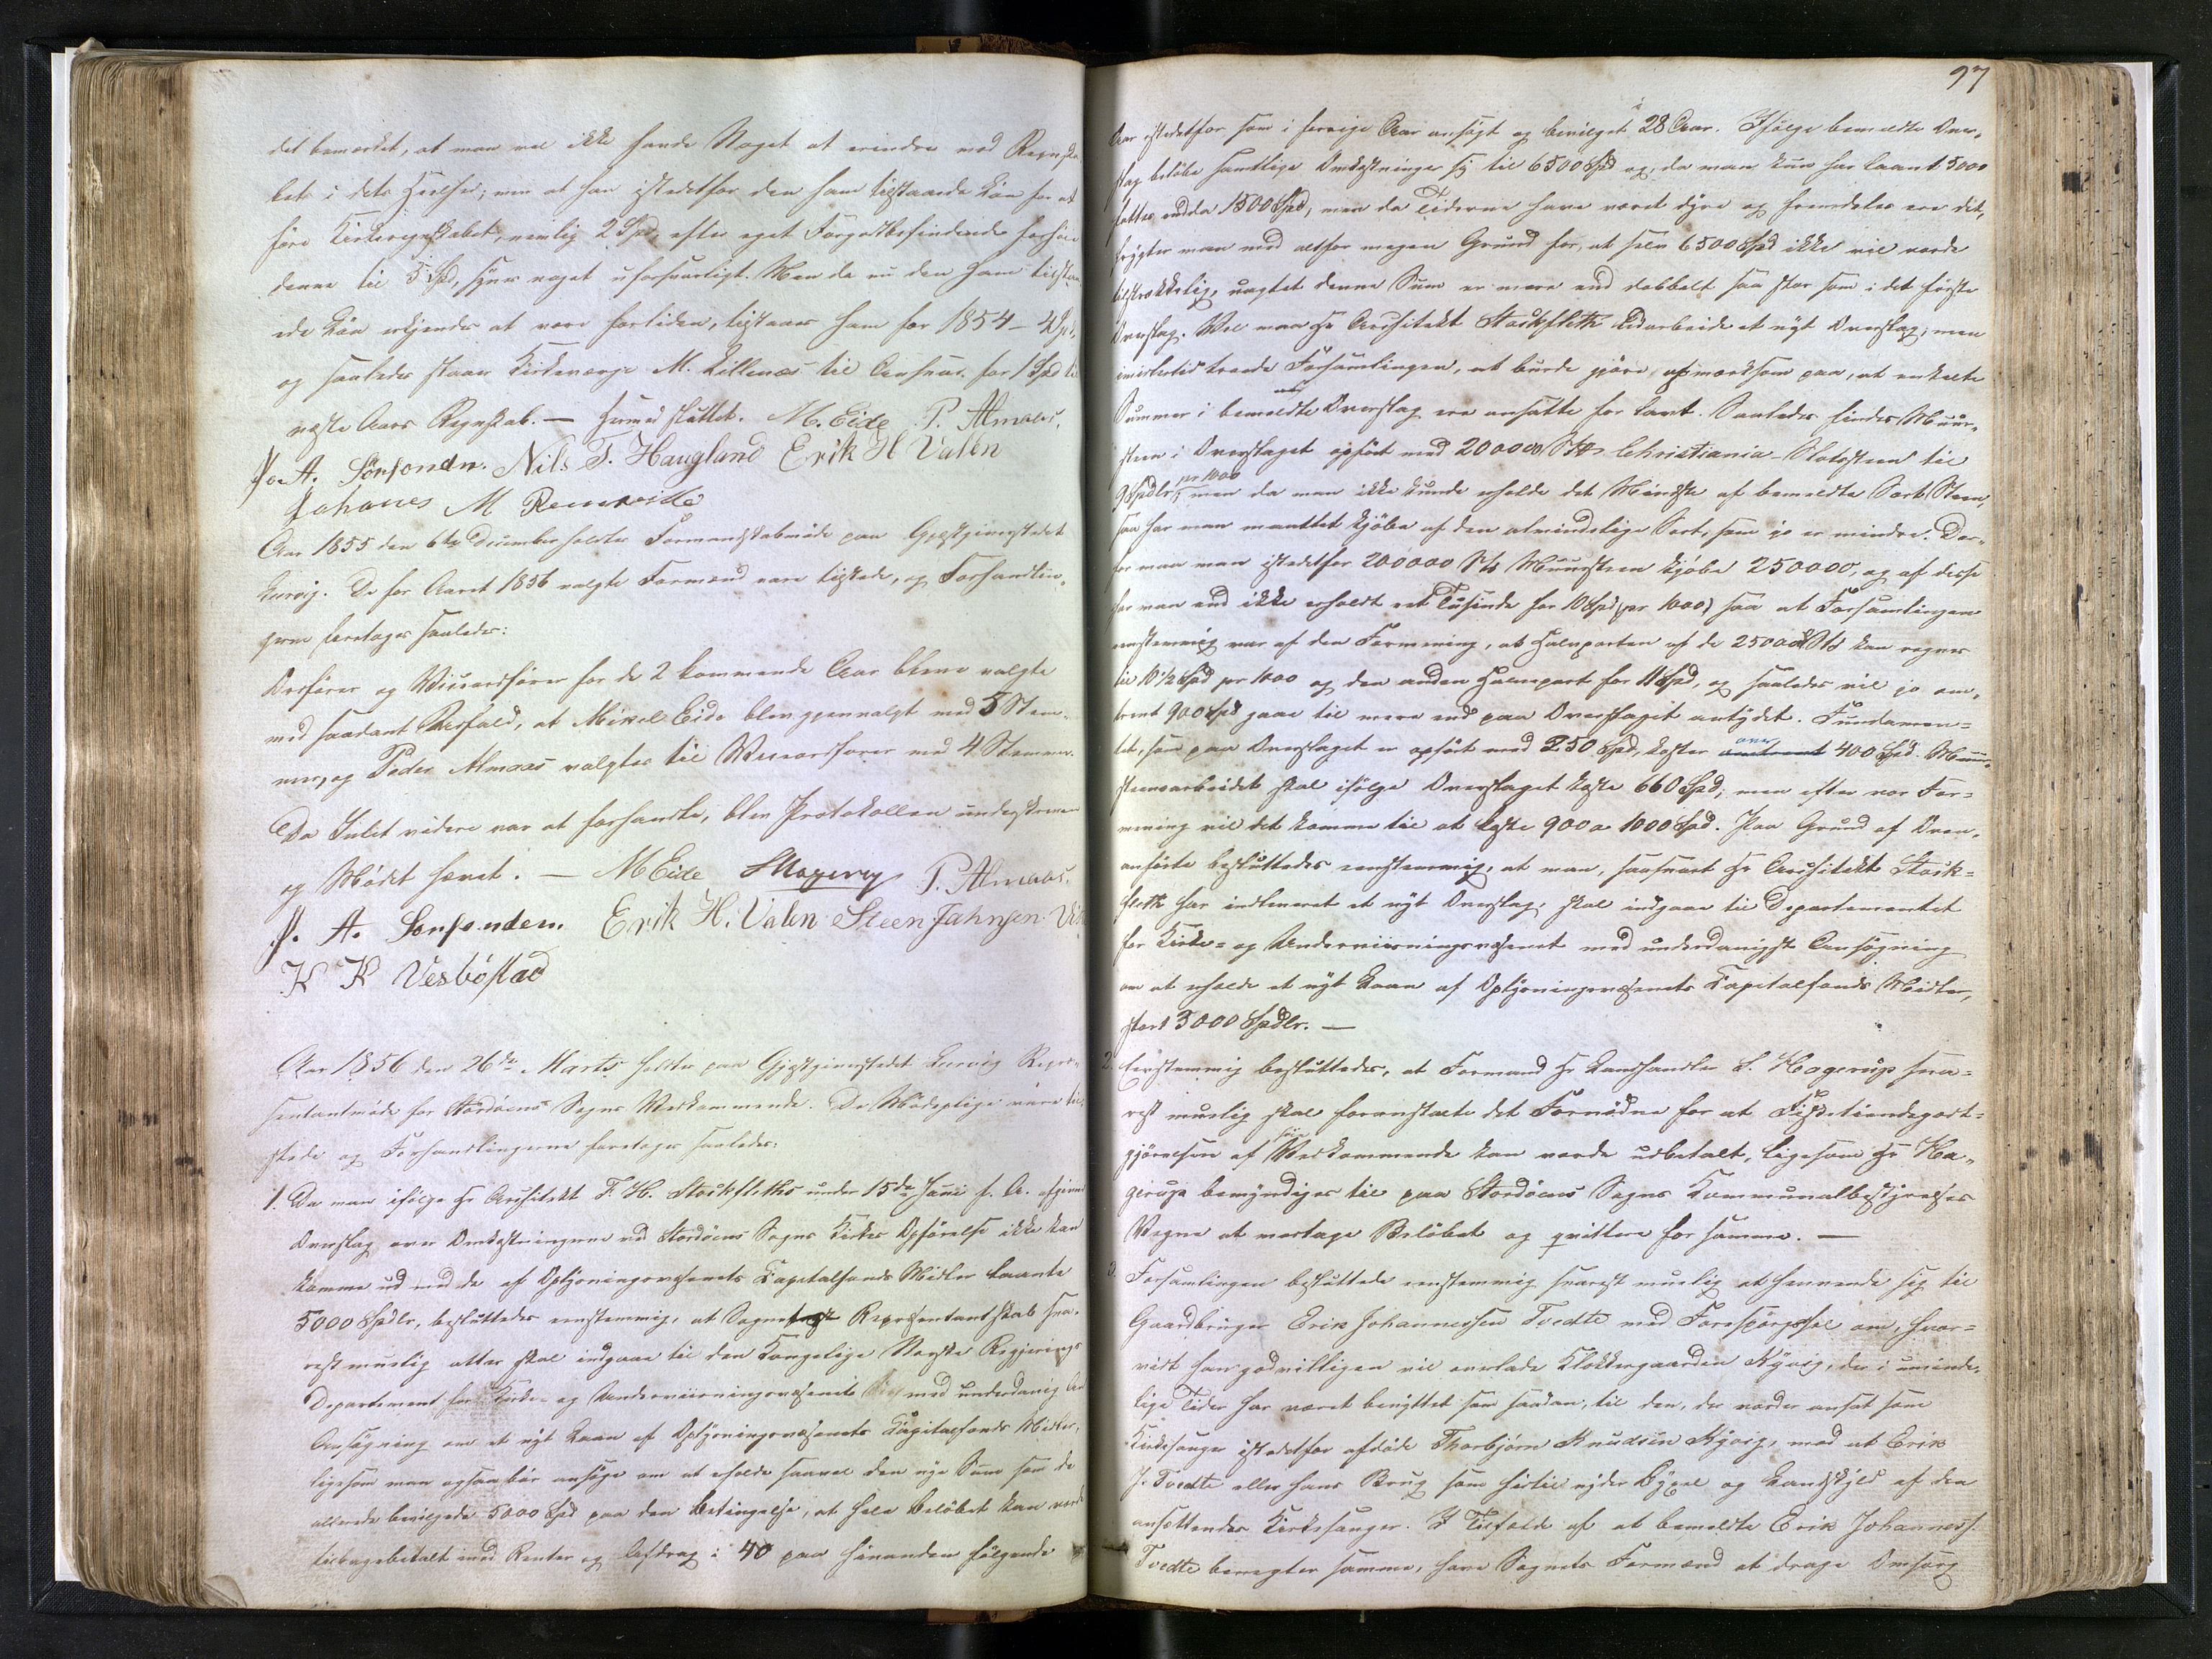 det bemærket, at man vel ikke havde Noget at erindre mod Regnska-
bets i dets Heelhed; men at han istedetfor den ham tilstaaede Løn for at
føre Kirkeregnskabet, nemlig 2 Spd, efter eget Forgodtbefindende forhøie
denne til 5 Spd, synes noget uforsvarligt. Men da nu den ham tilstaa-
ede Løn erkjendes at være forliden, tilstaaes ham for 1854 - 4 Spd,
og saaledes staaer Kirkeværge M. Lillenæs til Ansvar for 1 Spd til
næste Aars Regnskab. — Hermed sluttet. M. Eide P. Almaas,
P. A. Sørhonden. Nils T. Haugland Erik H Valen
Johanes M
Aar 1855 den 6te December holdtes Formandskabsmøde paa Gjæstgiverstedet
Lervig. De for Aaret 1856 valgte Formænd vare tilstede, og Forhandlin-
gerne foretoges saaledes:
Ordfører og Viceordfører for de 2 kommende Aar bleve valgte
med saadant Udfald, at Mikel Eide blev gjenvalgt med 5 Stem-
mer, og Peder Almaas valgtes til Viceordfører med 4 Stemmer.
Da Intet videre var at forhandle, blev Protokollen underskreven
og Mødet hævet. — M Eide P. Almaas,
P. A. Sørhonden. Erik H. Valen Steen Jahnsen Vik
K K Vesbøstad
Aar 1856 den 26de Marts holdtes paa Gjæstgiverstedet Lervig Repræ-
sentantmøde for Stordøens Sogns Vedkommende. De Mødepligtige vare til-
stede og Forhandlingerne foretoges saaledes:
1. Da man ifølge Hr Architekt F. H. Stockfleths under 15de Juni f. A. afgivne
Overslag over Omkostningerne ved Stordøens Sogns Kirkes Opførelse ikke kan
komme ud med de af Oplysningsvæsenets Kapitalfonds Midler laante
5000 Spdlr, besluttedes eenstemmig, at Sognets Repræsentantskab sna-
rest muelig atter skal indgaae til den Kongelige Norske Regjerings
Departement for Kirke- og Underviisningsvæsenet med underdanig
Ansøgning om et nyt Laan af Oplysningsvæsenets Kapitalfonds Midler,
ligesom man ogsaa bør ansøge om at erholde saavel den nye Sum som de
allerede bevilgede 5000 Spd paa den Betingelse, at hele Beløbet kan vorde
tilbagebetalt med Renter og Afdrag i 40 paa hinanden følgende
97
Aar istedetfor som i forrige Aar ansøgt og bevilget i 28 Aar. Ifølge bemeldte Over-
slag beløbe samtlige Omkostninger sig til 6500 Spd og, da man kun har laant 5000
fattes endda 1500 Spd, men da Tiderne have været dyre og fremdeles ere det,
frygter man med altfor megen Grund for, at selv 6500 Spd ikke vil vorde
tilstrækkelig, uagtet denne Sum er mere end dobbelt saa stor som i det første
Overslag. Vel maa Hr Architekt Stockfleth udarbeide et nyt Overslag; men
imidlertid troede Forsamlingen, at burde gjøre opmærksom paa, at enkelte
Summer i bemeldte Overslag ere ansatte for lavt. Saaledes findes Muur-
steen i Overslaget opført med 200000 Stk Christiania-Slotssteen til
9 Spdlr pr 1000, men da man ikke kunde erholde det Mindste af bemeldte Sort Steen,
saa har man maattet kjøbe af den almindelige Sort, som jo er mindre. Der-
for maa man istedetfor 200000 Stk Muursteen kjøbe 250000, og af disse
har man end ikke erholdt eet Tusinde for 10 Spd (pr 1000) saa at Forsamlingen
eenstemmig var af den Formening, at Halvparten af de 250000 Stk kan regnes
til 10 1/2 Spd pr 1000 og den anden Halvpart for 11 Spd, og saaledes vil jo om-
trent 900 Spd gaae til mere end paa Overslaget antydet. Fundamen-
tet, som paa Overslaget er opført med 250 Spd, koster omtrent over 400 Spd. Muur-
steensarbeidet skal ifølge Overslaget koste 660 Spd; men efter vor For-
mening vil det komme til at koste 900 a 1000 Spd. Paa Grund af Oven-
anførte besluttedes eenstemmig, at man, saasnart Hr Architekt Stock-
fleth har indleveret et nyt Overslag, skal indgaae til Departementet
for Kirke- og Underviisningsvæsenet med underdanigst Ansøgning
om at erholde et nyt Laan af Oplysningsvæsenets Kapitalfonds Midler,
stort 3000 Spdlr. —
2. Eenstemmig besluttedes, at Formand Hr Landhandler S. Hagerup sna-
rest muelig skal foranstalte det Fornødne for at Fisketiendegodt-
gjørelsen af Vedkommende kan vorde udbetalt, ligesom Hr Ha-
gerup bemyndiges til paa Stordøens Sogns Kommunalbestyrelses
Vegne at modtage Beløbet og qvittere for samme. —
3. Forsamlingen besluttede eenstemmig snarest muelig at henvende sig til
Gaardbruger Erik Johannessen Tvedte med Forespørgsel om, hvor-
vidt han godvilligen vil overlade Klokkergaarden Kyvig, der i uminde-
lige Tider har været benyttet som saadan, til den, der vorder ansat som
Kirkesanger istedetfor afdøde Thorbjørn Knudsen Kyvig, mod at Erik
J. Tvedte eller hans Brug som hidtil nyder Bygsel og Landskyld af den
ansættendes Kirkesanger. I Tilfælde af at bemeldte Erik Johanness.
Tvedte benegter samme, have Sognets Formænd at drage Omsorg